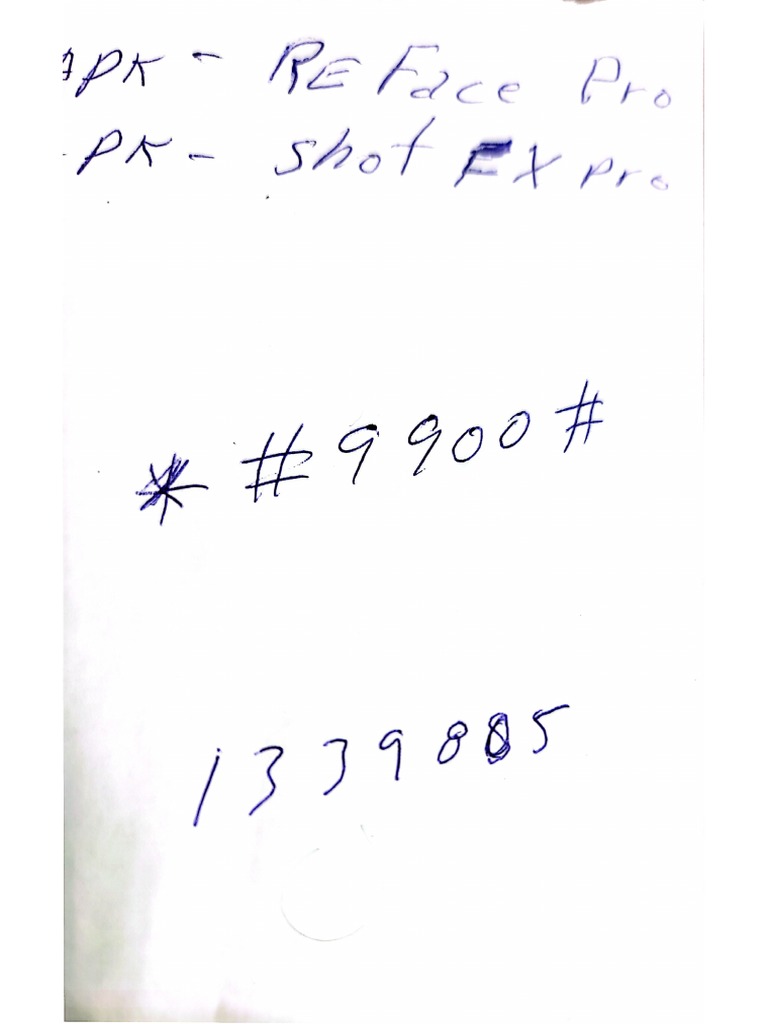 APK - REFace Pro
PK - shot EX pro
*#9900#
1339885